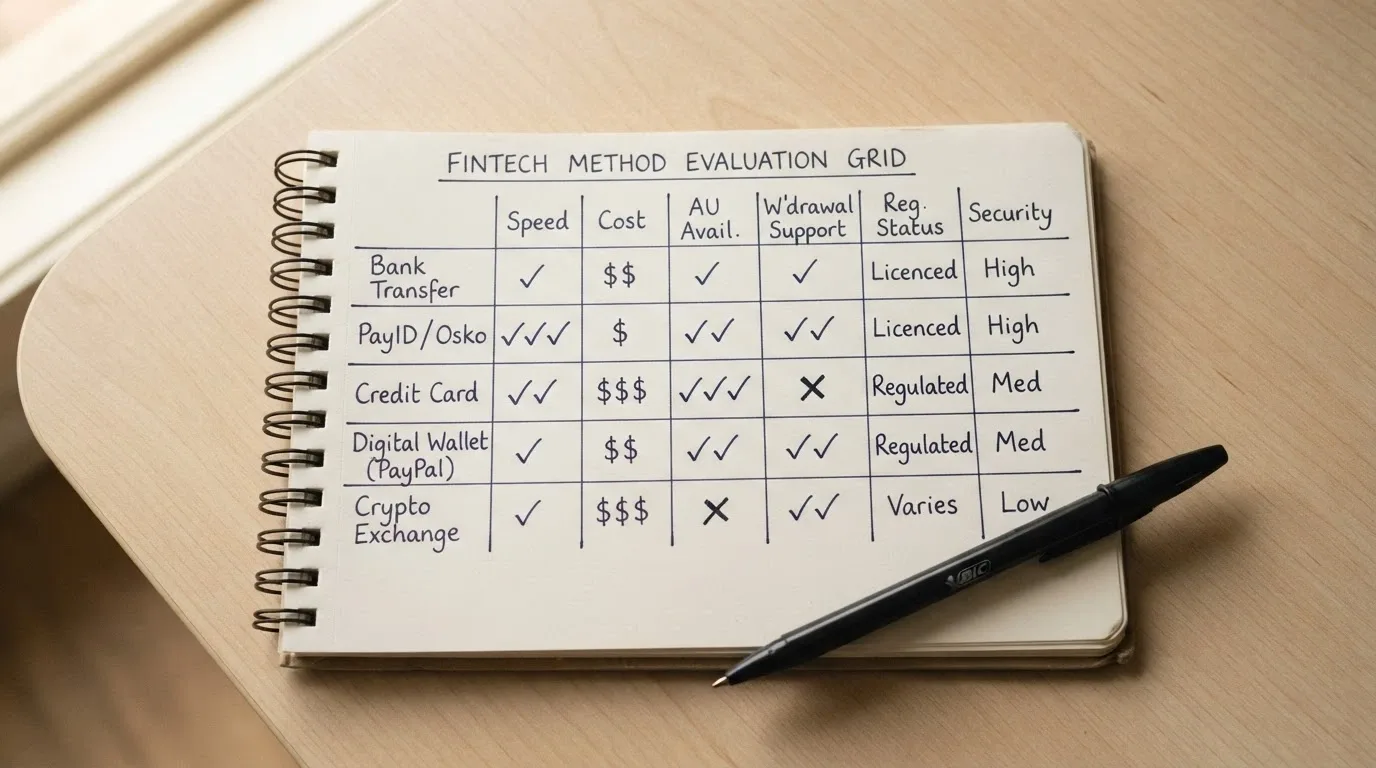 FINTECH METHOD EVALUATION GRID
Speed Cost AU Avail. W'drawal Support Reg. Status Security
Bank Transfer ✓ $$ ✓ ✓ Licenced High
PayID/Osko ✓✓✓ $ ✓✓ ✓✓ Licenced High
Credit Card ✓✓ $$$ ✓✓✓ ✗ Regulated Med
Digital Wallet (PayPal) ✓ $$ ✓✓ ✓✓ Regulated Med
Crypto Exchange ✓ $$$ ✗ ✓✓ Varies Low
BIC